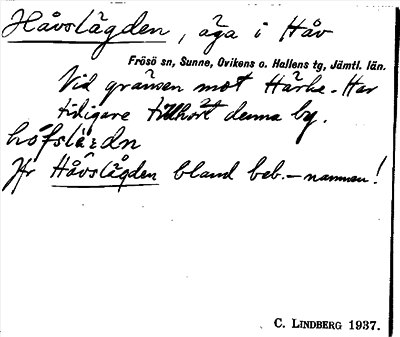 Håvslägden, äga i Håv
Frösö sn, Sunne, Ovikens o. Hallens tg, Jämtl. län.
Vid gränsen mot Härke. Har
tidigare tillhört denna by.
hófslä:dn
Jfr Håvslägden bland beb.-namnen!
C. LINDBERG 1937.